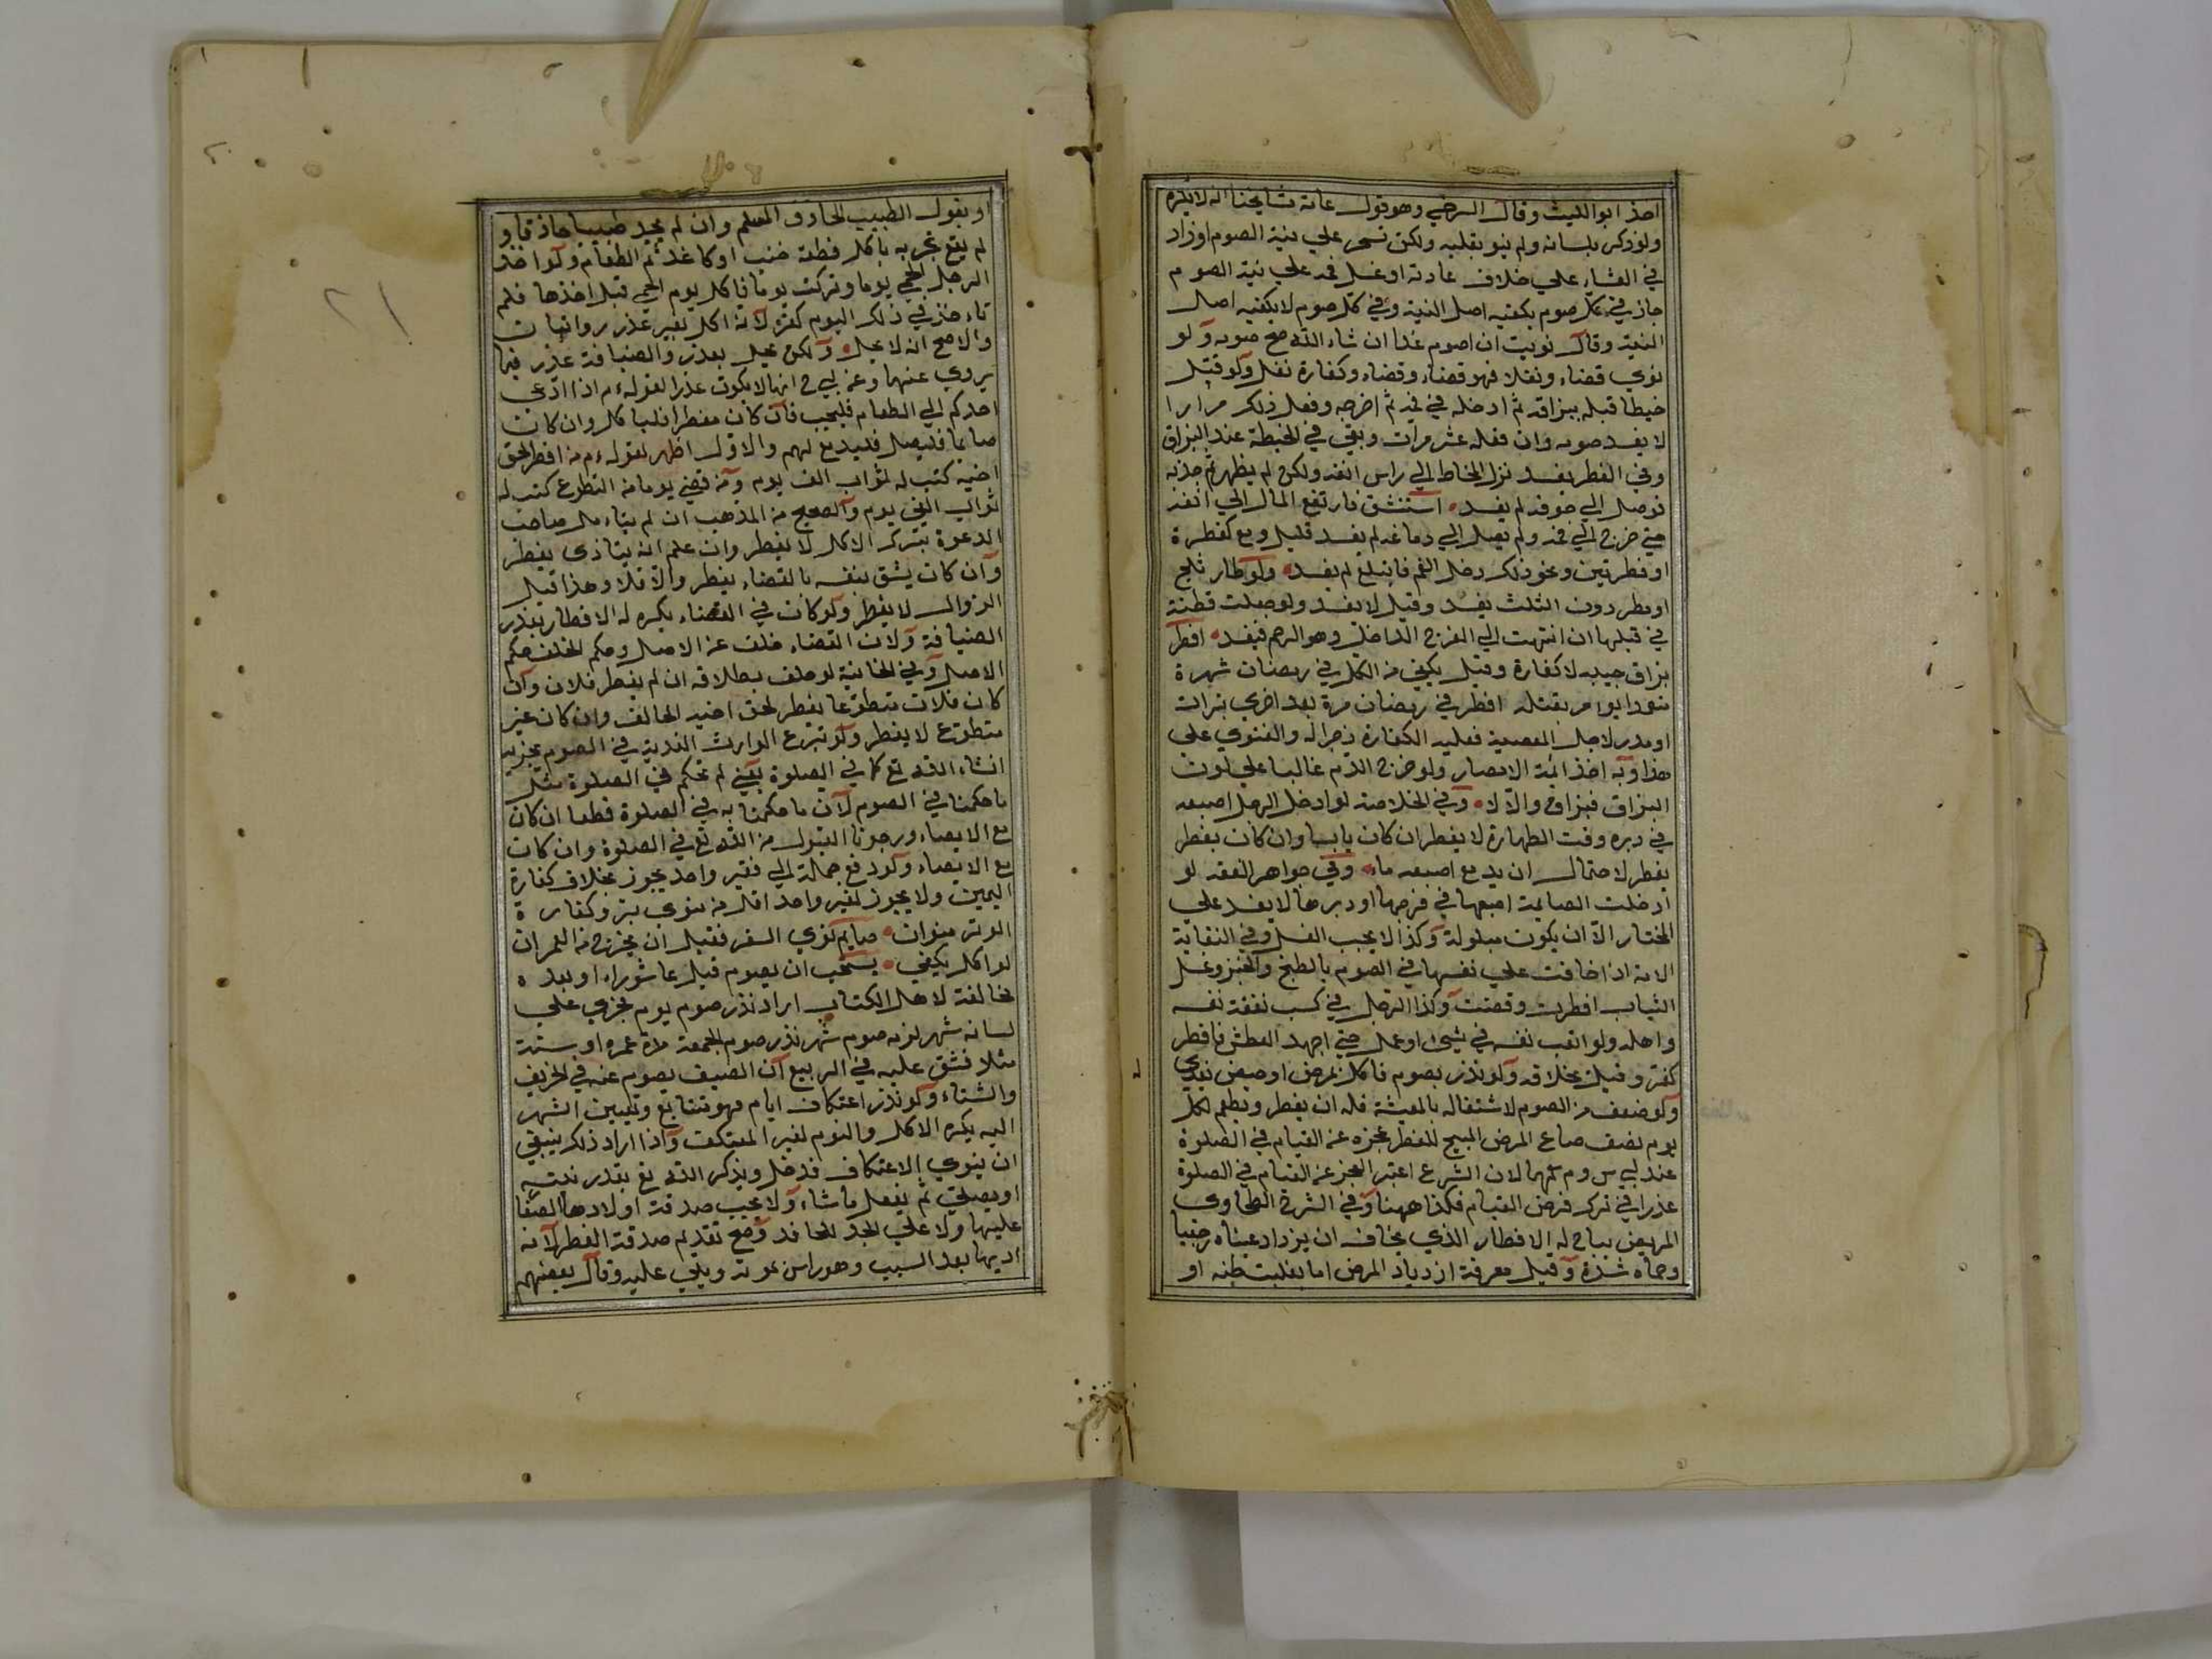 اخذ ابو الليث وقال السرخي وهو قول عامة مشايخنا انه لا يكره
ولو ذكر بلسانه ولم ينو بقلبه ولكن تسحر علي نية الصوم او زاد
في العشاء علي خلاف عادته او غسل فمه علي نية الصوم
جاز في كل صوم يكفيه اصل النية وفي كل صوم لا يكفيه اصل
النية وقال نويت ان اصوم غدا ان شاء الله صح صومه ولو
نوي قضاء ونفلا فهو قضاء وقضاء وكفارة نفل ولو فتل
خيطا قبله ببزاقه ثم ادخله في فمه ثم اخرجه وفعل ذلك مرارا
لا يفسد صومه وان فعله عشر مرات وبقي في الخيطة عند البزاق
وفي الفطر يفسد نزل المخاط الي راس انفه ولكن لم يظهر ثم جذبه
فوصل الي جوفه لم يفسد استنشق فارتفع الماء الي انفه
حتي خرج الي فمه ولم يصل الي دماغه لم يفسد قليل ومع كقطرة
او قطرتين ونحو ذلك دخل الفم فابتلع لم يفسد ولو طار ثلج
او مطر دون الثلث يفسد وقيل لا يفسد ولو وصلت قطنة
في قبلها ان انتهت الي الفرج الداخل وهو الرحم فيفسد افطر
بزاق حبيبه لا كفارة وقيل يكفي من اكل في رمضان شهرة
متعمدا يؤمر بقتله افطر في رمضان مرة بعد اخري بتراب
او مدر لاجل المعصية فعليه الكفارة زجرا له والفتوي علي
هذا وبه اخذ ائمة الامصار ولو خرج الدم غالبا علي لون
البزاق فبزاق والا لا وفي الخلاصة لو ادخل الرجل اصبعه
في دبره وقت الطهارة لا يفطر ان كان يابسا وان كان يفطر
يفطر لاحتمال ان يدمع اصبعه ماء وفي جواهر الفقه لو
ادخلت الصايمة اصبعها في فرجها او دبرها لا يفسد علي
المختار الا ان يكون مبلولة وكذا لا يجب الغسل وفي النقاية
الامة اذا خافت علي نفسها في الصوم بالطبخ والخبز وغسل
الثياب افطرت وقضت وكذا الرجل في كسب نفقة نفسه
واهله ولو اتعب نفسه في شيئ او عمل حتي اجهد العطش فافطر
كفر وقيل بخلافه ولو نذر بصوم فاكل لمرض او حيض يفدي
ولو ضعف من الصوم لاشتغاله بالمعيشة فله ان يفطر ويطعم لكل
يوم نصف صاع المرض المبيح للفطر عجزه عن القيام في الصلوة
عند لبي س وم كهما لان الشرع اعتبر العجز عن القيام في الصلوة
عذرا في ترك فرض القيام فكذا ههنا وفي الشرح الطحاوي
المريض يباح له الافطار الذي يخاف ان يزداد عيناه رجيبا
وحماه شدة وقيل معرفة ازدياد المرض اما بغلبة ظنه او
او بقول الطبيب الحاذق المسلم وان لم يجد طبيبا حاذقا و
لم يقع تجربه باكل قطعة خشب او كاغد ثم الطعام ولو اخذ
الرجل الحمي يوما وتركت يوما فاكل يوم الحمي قبل اخذها فلم
تاء خذ في ذلك اليوم كفر لانه اكل بغير عذر روايتان
والاصح انه لا يحل ولكن يحل بعذر والضيافة عذر فيما
يروي عنهما وعن لبي ح انها لا يكون عذرا لقوله ءم اذا ادعي
احدكم الي الطعام فليجب فان كان مفطرا فليأكل وان كان
صايما فليصل فليدع لهم والاول اظهر لقوله ءم من افطر لحق
اخيه كتب له ثواب الف يوم ومن قضي يوما من التطوع كتب له
ثواب الفي يوم والصحيح من المذهب ان لم يتاء مل صاحب
الدعوة بترك الاكل لا يفطر وان علم انه يتاذي يفطر
وان كان يشق بنفسه بالقضاء يفطر والا فلا وهذا قبل
الزوال لا يفطر ولو كانت في القضاء يكره له الافطار بعذر
الضيافة ولان القضاء خلف عن الاصل وحكم الخلف حكم
الاصل وفي الخانية لو حلف بطلاقه ان لم يفطر فلان وان
كان فلان متطوعا يفطر لحق اخيه الحالف وان كان غير
متطوع لا يفطر ولو تبرع الوارث الفدية في الصوم يجزيه
انشاء الله تع كما في الصلوة يعني لم نحكم في الصلوة مثل
ما حكمنا في الصوم لان ما حكمنا به في الصلوة قطعا ان كان
مع الايصاء ورجونا القبول من الله تع في الصلوة وان كان
مع الايصاء ولو دفع جملة الي فقير واحد يجوز بخلاف كفارة
اليمين ولا يجوز لفقير واحد اقل من منوي بر وكفارة
الوتر منوان صايم نوي السفر فقبل ان يخرج من العمران
لو اكل يكفي يستحب ان يصوم قبل عاشوراء او بعده
مخالفة لاهل الكتاب اراد نذر صوم يوم فجري علي
لسانه شهر لزمه صوم شهر نذر صوم الجمعة مدة عمره او سنة
مثلا فشق عليه في الربيع ان الصيف يصوم عنه في الخريف
والشتاء ولو نذر اعتكاف ايام فهو تتابع وتعيين الشهر
اليه يكره الاكل والنوم لغير المعتكف واذا اراد ذلك ينبغي
ان ينوي الاعتكاف فدخل ويذكر الله تع بقدر نيته
او يصلي ثم يفعل ما شاء ولا يجب صدقة اولادها الصغا
عليها ولا علي الجد للحافد وصح تقديم صدقة الفطر لانه
اديها بعد السبب وهو راس يمونه ويلي عليه وقال بعضهم